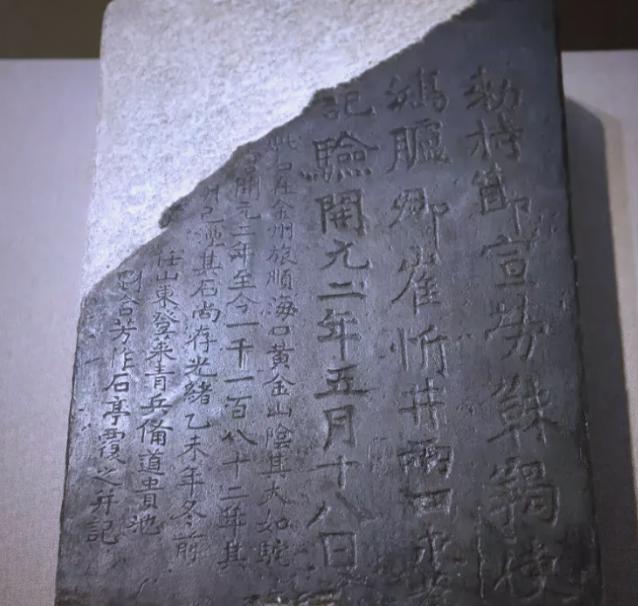 勅持節宣勞靺羯使
鴻臚卿崔忻井兩口永為
記驗開元二年五月十八日
此石在金州旅順海口黃金山陰其大如駝
開元二年至今一千一百八十二年其
已湮其石尚存光緒乙未年冬前
任山東登萊青兵備道貴池
劉含芳作石亭覆之并記